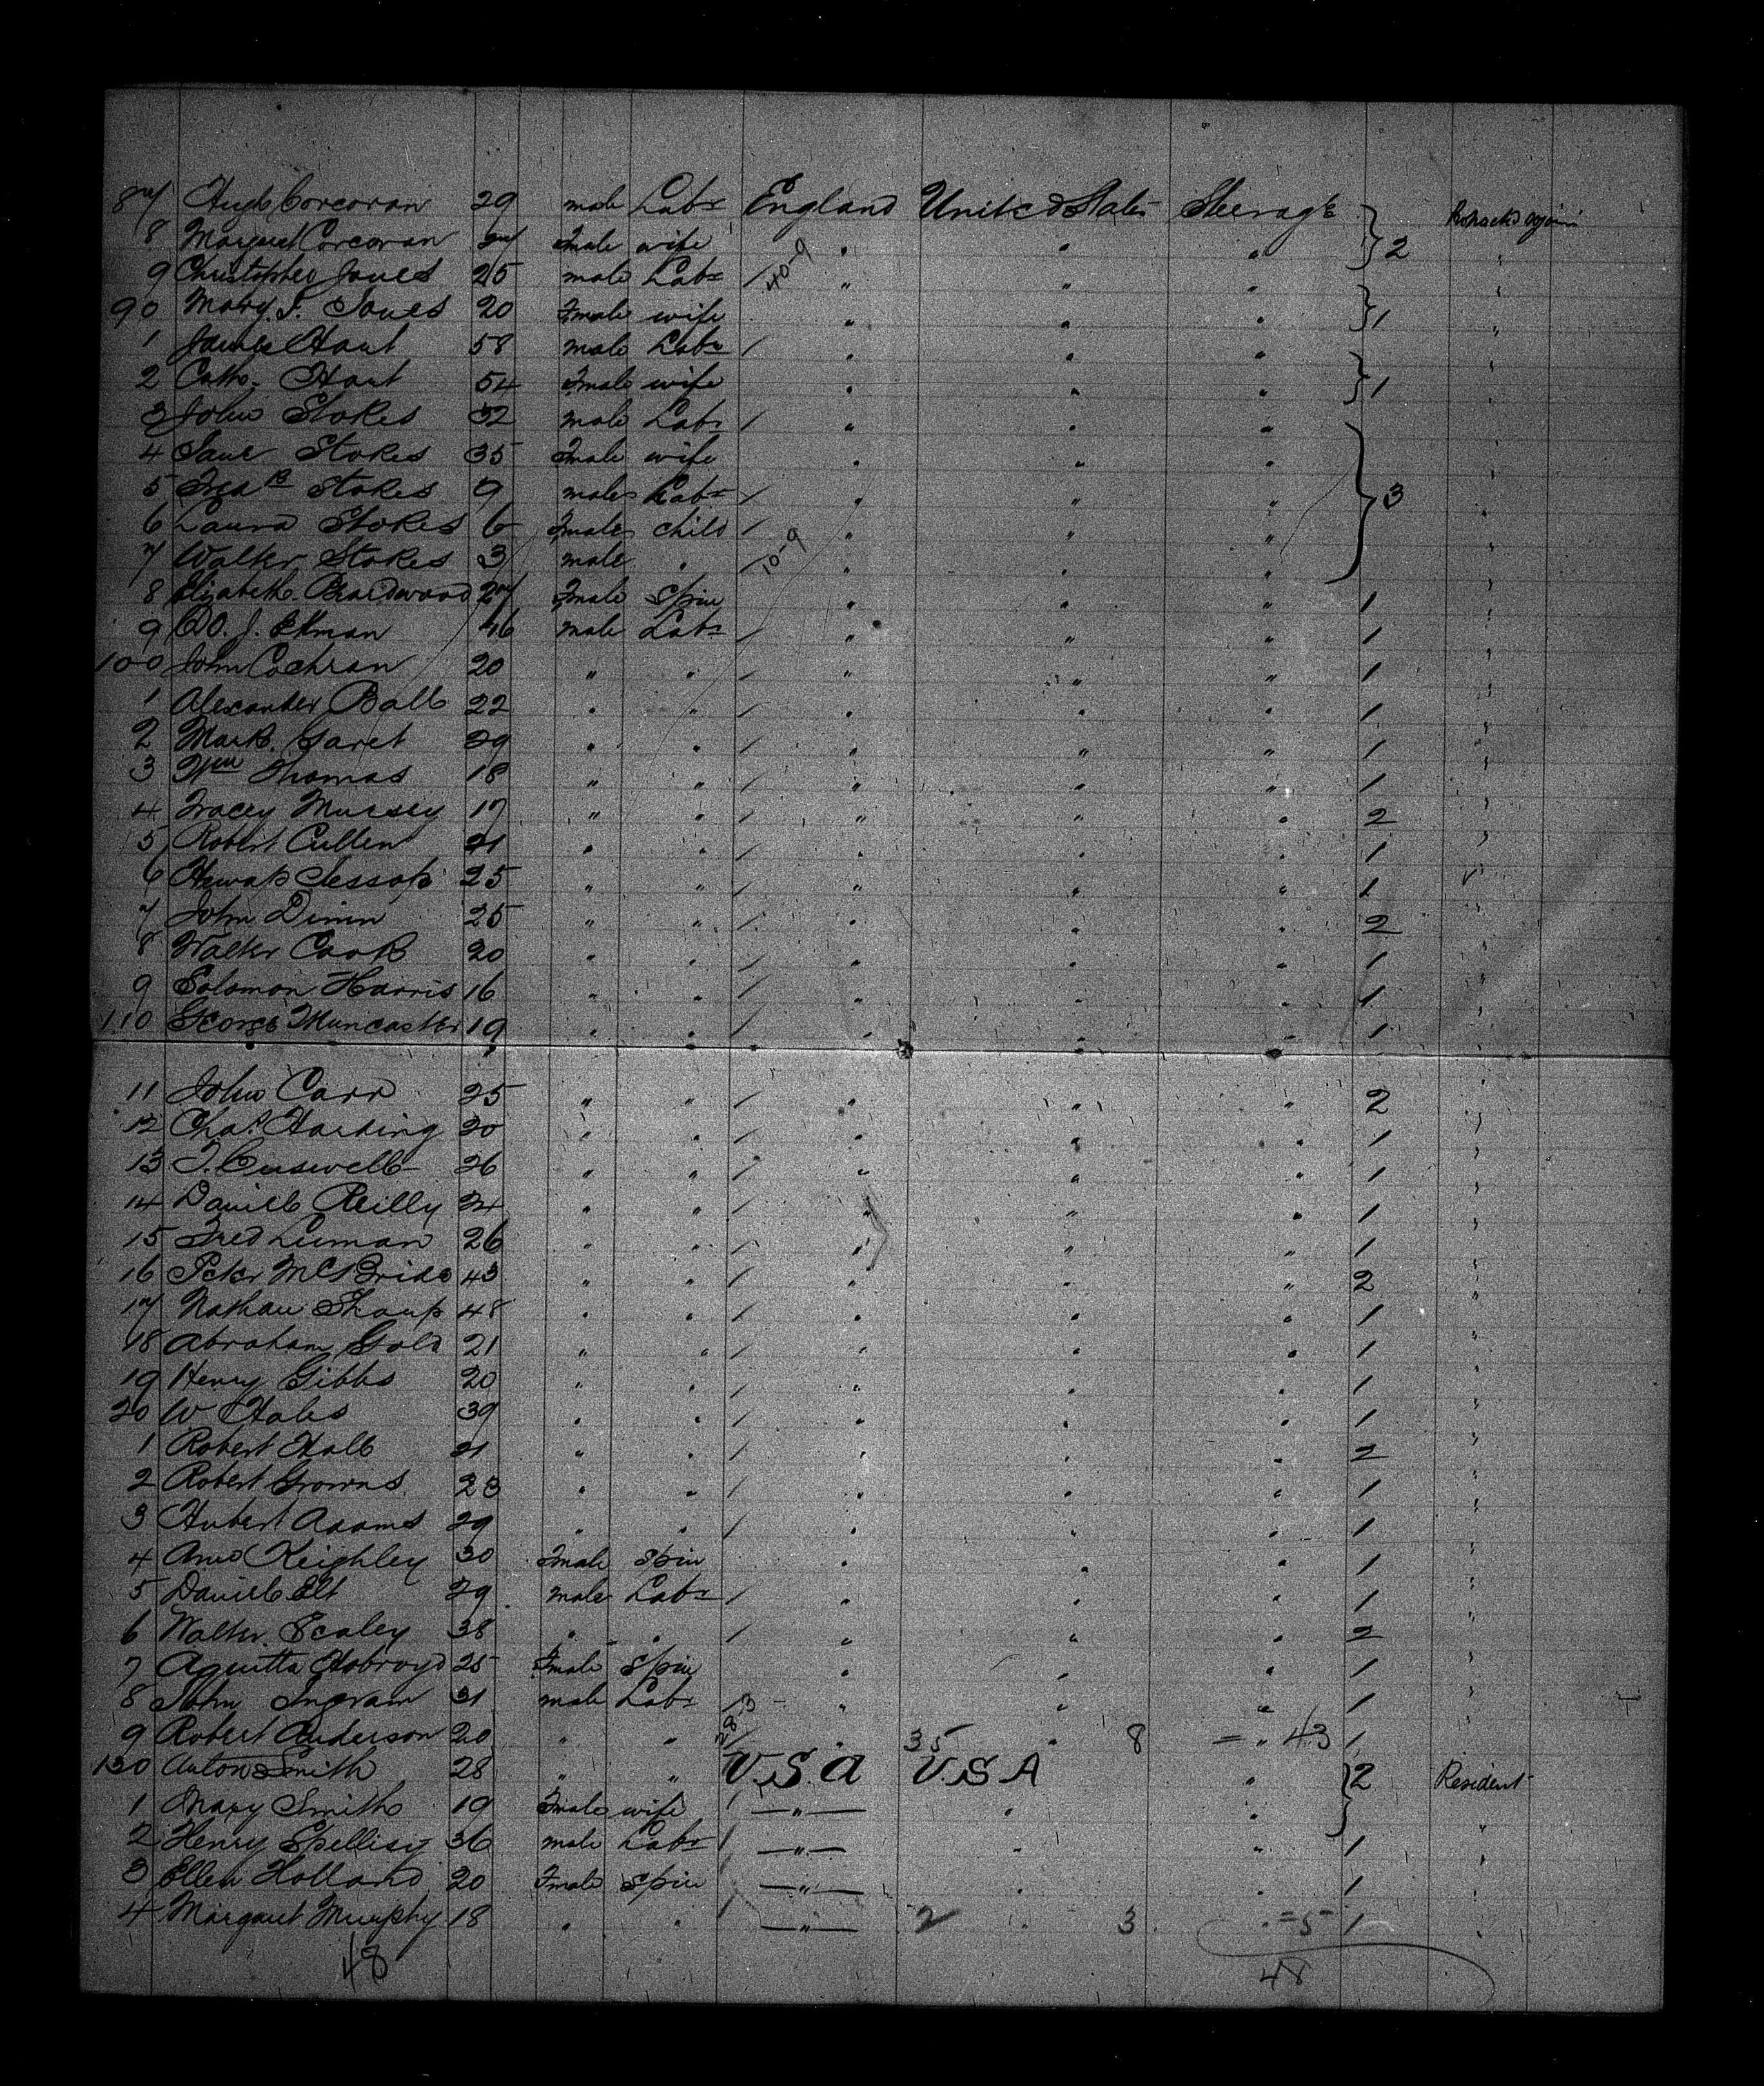 87 Hugh Corcoran 29 male Labr England United States Steerage
8 Margaret Corcoran 27 Fmale wife " " " 2 "
9 Christopher Jones 25 male Labr / " " " "
90 Mary J. Jones 20 Fmale wife " " " 1 "
1 James Hart 58 male Labr / " " " "
2 Cath. Hart 54 Fmale wife " " " 1 "
3 John Stokes 32 male Labr / " " " "
4 Jane Stokes 35 Fmale wife " " " "
5 Fredk Stokes 9 male Labr / " " " 3 "
6 Laura Stokes 6 Fmale child / " " " "
7 Walter Stokes 3 male " / 10-9 " " " "
8 Elizabeth Beardwood 27 Fmale Spin " " " 1 "
9 O. J. Ekman 46 male Labr / " " " 1 "
100 John Cochran 20 " " / " " " 1 "
1 Alexander Ball 22 " " / " " " 1 "
2 Mark Garet 29 " " / " " " 1 "
3 Wm Thomas 18 " " / " " " 1 "
4 Tracey Mursey 17 " " / " " " 2 "
5 Robert Cullen 21 " " / " " " 1 "
6 Jessop 25 " " / " " " 1 "
7 John Dinin 25 " " / " " " 2 "
8 Walter Cook 20 " " / " " " 1 "
9 Solomon Harris 16 " " / " " " 1 "
110 George Muncaster 19 " " / " " " 1 "
11 John Carr 25 " " / " " " 2 "
12 Chas. Harding 20 " " / " " " 1 "
13 T. Cuswell 26 " " / " " " 1 "
14 Daniel Reilly 24 " " / " " " 1 "
15 Fred Luman 26 " " / " " " 1 "
16 Peter McBride 43 " " / " " " 2 "
17 Nathan Shoup 48 " " / " " " 1 "
18 Abraham Gold 21 " " / " " " 1 "
19 Henry Gibbs 20 " " / " " " 1 "
20 W Hales 39 " " / " " " 1 "
1 Robert Hall 21 " " / " " " 2 "
2 Robert Growns 23 " " / " " " 1 "
3 Hubert Adams 29 " " / " " " 1 "
4 Ann Keighley 30 Fmale Spin " " " 1 "
5 Daniel Elt 29 male Labr / " " " 1 "
6 Walter Scaley 38 " " / " " " 2 "
7 Aquitta Hobroyd 25 Fmale Spin " " " 1 "
8 John Ingram 31 male Labr / " " " 1 "
9 Robert Anderson 20 " " / " 35 " 8 = " 43 1
130 Anton Smith 28 " " U.S.A U.S.A " 2 Resident
1 Mary Smith 19 Fmale wife " " " "
2 Henry Spellisy 36 male Labr / " " " 1 "
3 Ellen Holland 20 Fmale Spin " " " 1 "
4 Margaret Murphy 18 " " " 2 " 3 " =5 1 "
48 48